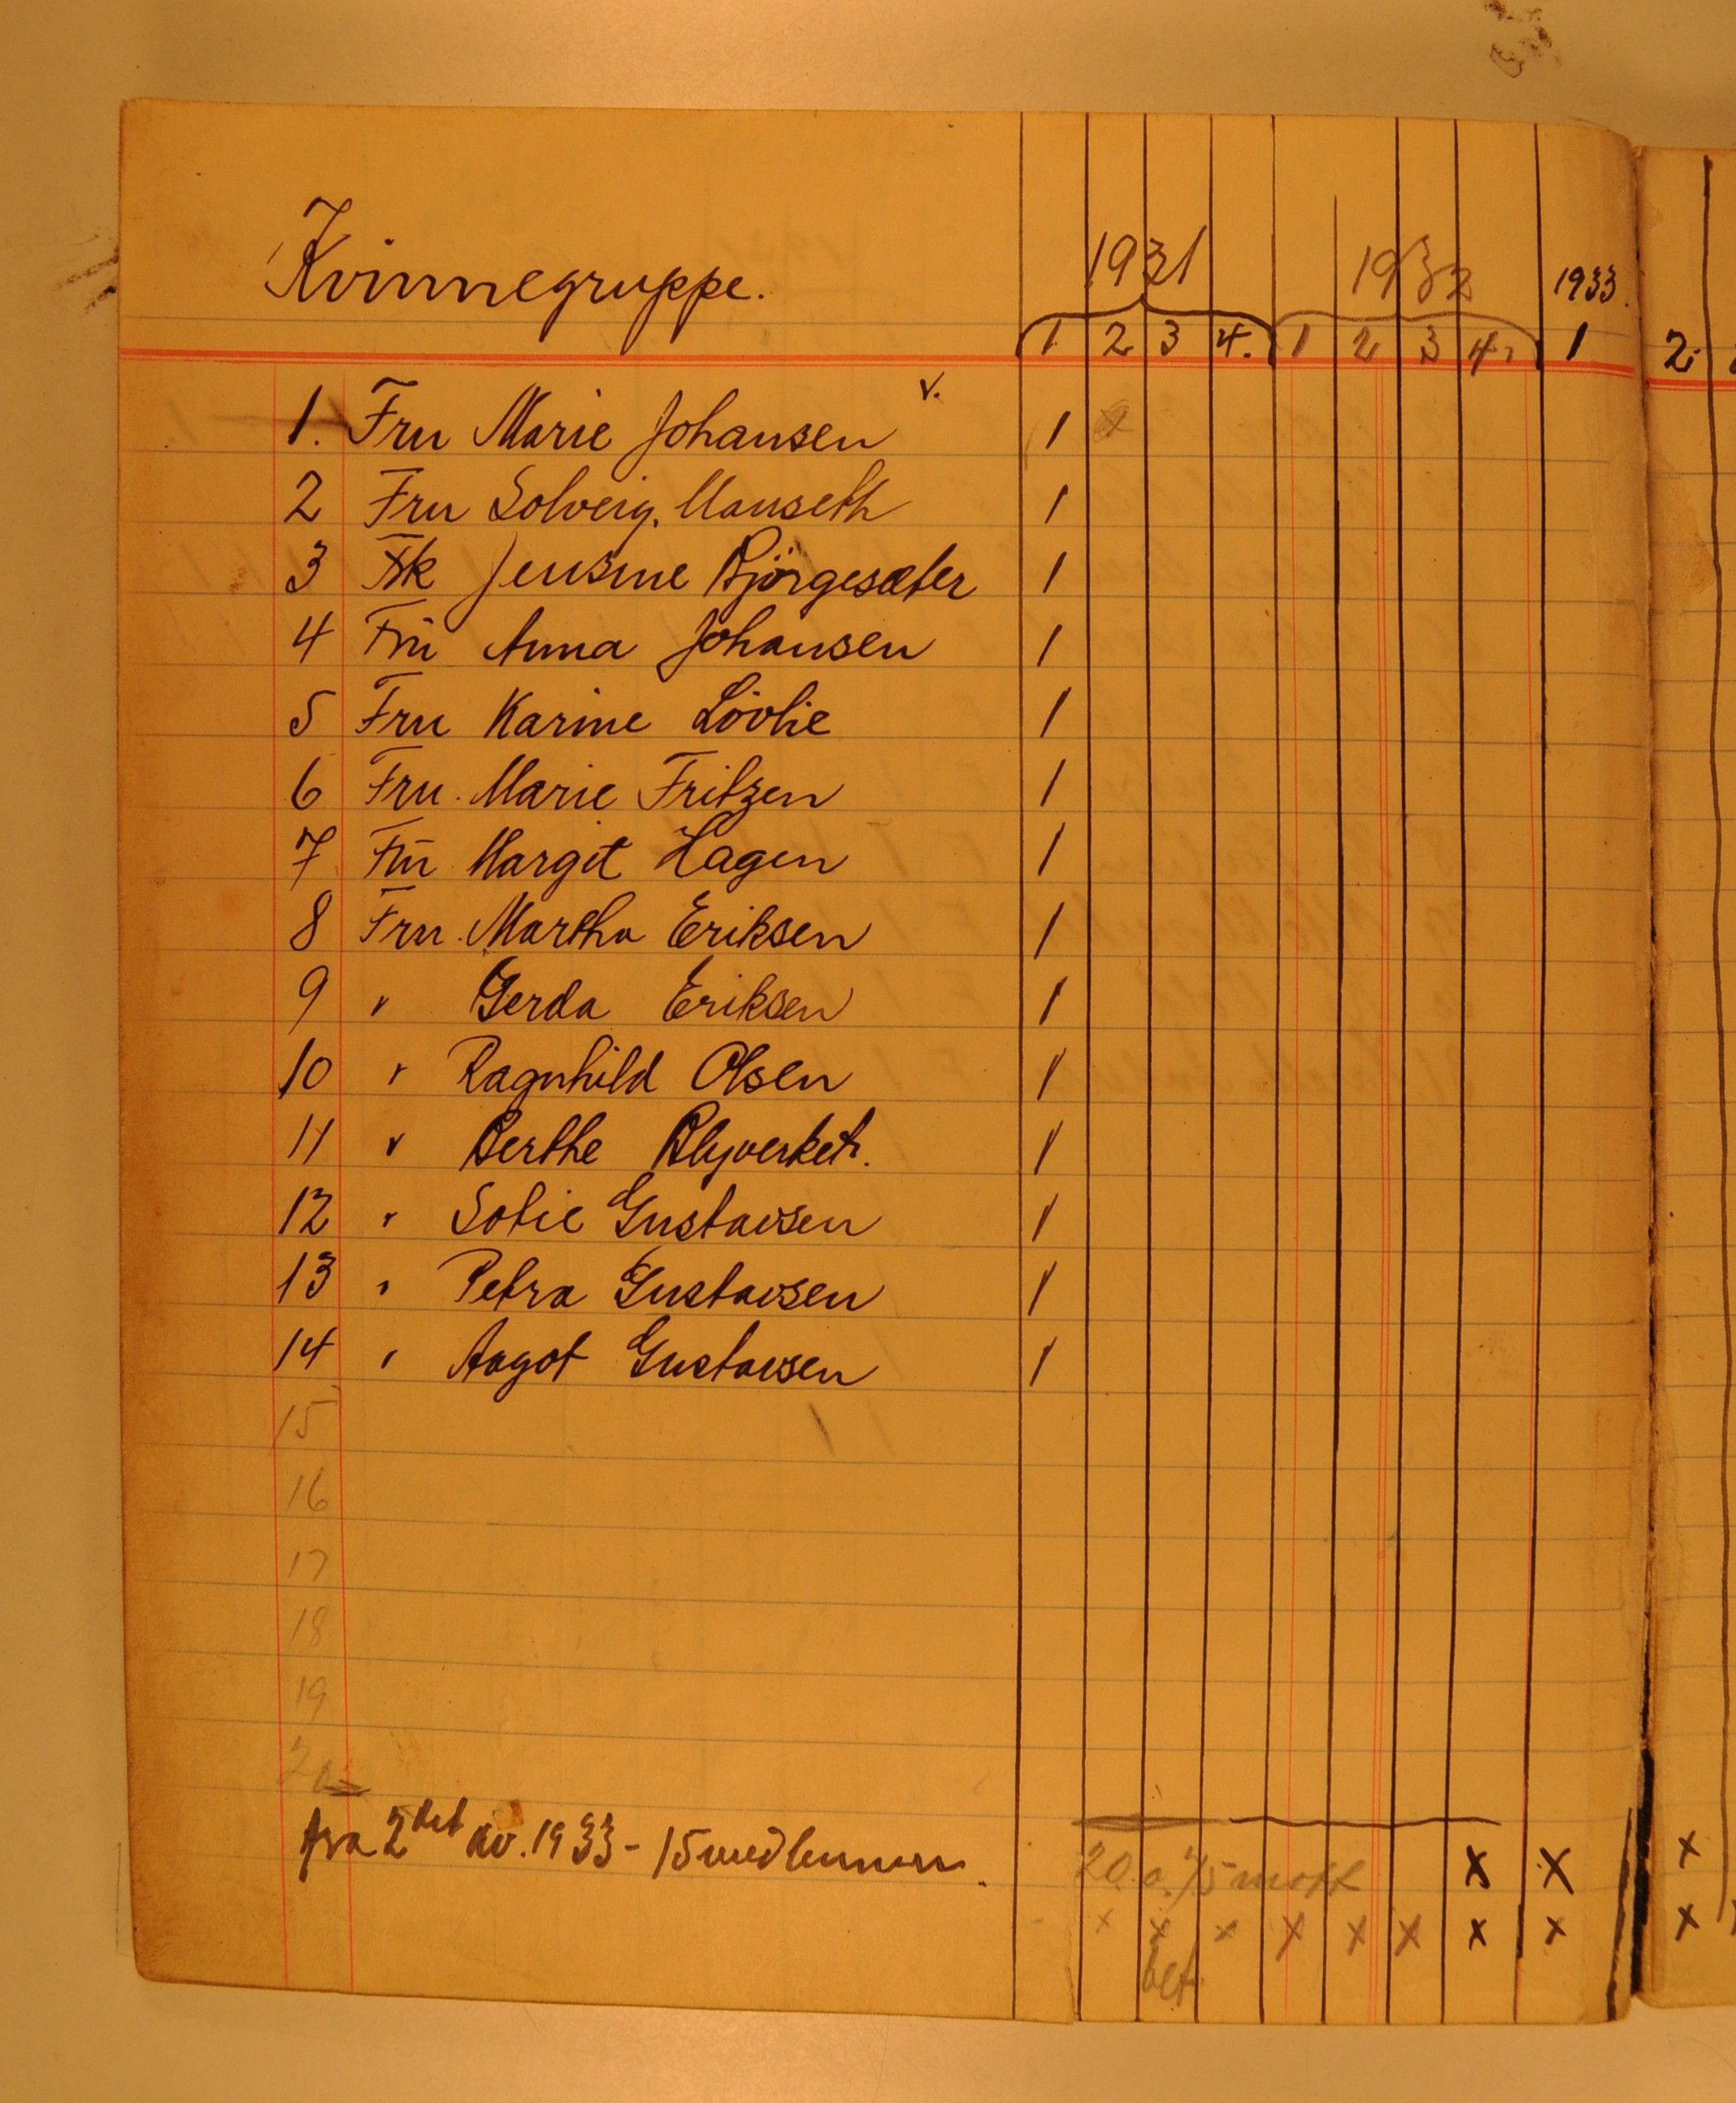 Kvinnegruppe. 1931 1932 1933.
1 2 3 4. 1 2 3 4. 1 2.
v.
1. Fru Marie Johansen 1
2 Fru Solveig. Mauseth 1
3 Frk Jensine Björgesæter 1
4 Fru Anna Johansen 1
5 Fru Karine Lövlie 1
6 Fru. Marie Fritzen 1
7 Fru Margit Hagen 1
8 Fru. Martha Eriksen 1
9 " Gerda Eriksen 1
10 " Ragnhild Olsen 1
11 " Berthe Blyverket. 1
12 " Sofie Gustavsen 1
13 " Petra Gustavsen 1
14 " Aagot Gustavsen 1
15
16
17
18
19
20
fra 2det kv. 1933 - 15 medlemmer. x x x
x x x x x x x x x